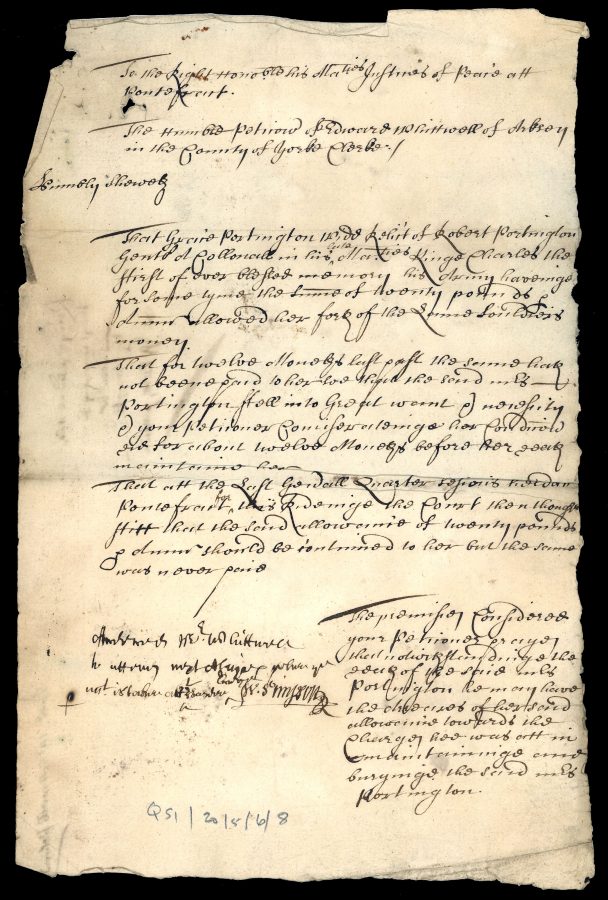 To the Right Honoble his Maties Justices of Peace att
Pontefract.
The Humble Peticon of Edward Whittwell of Arksey
in the County of Yorke Clerke./
Humbly Sheweth
That Grace Portington widd Relict of Robert Portington
Gent & Collonell in his late Maties Kinge Charles the
ffirst of ever blessed memory his Army haveinge
for some tyme the summe of twenty pounds p
Annum allowed her forth of the Lame Souldiers
money
That for twelve Moneths last past the same hath
not beene paid to her soe that the said Mrs
Portington ffell into Great want & necessity
& your Petitioner Comiserateinge her Condicon
did for about twelve Moneths before her death
maintaine her
That att the Last Genrall Quarter sessions held att
Pontefract for this Rideinge the Court then thought
ffitt that the said allowance of twenty pounds
p Annum should be continued to her but the same
was never paid
The premisses Considered
your Petitioner prayes
that notwithstandinge the
death of the said Mrs
Portington he may have
the Arreares of her said
allowance towards the
Charges hee was att in
maintaininge and
buryinge the said Mrs
Portington.
Mr Whittwell
to attend next
QS1/20/5/6/8